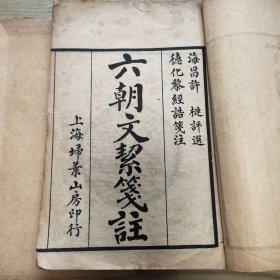 海昌許 槤評選
德化黎經誥箋注
六朝文絜箋註
上海掃葉山房印行